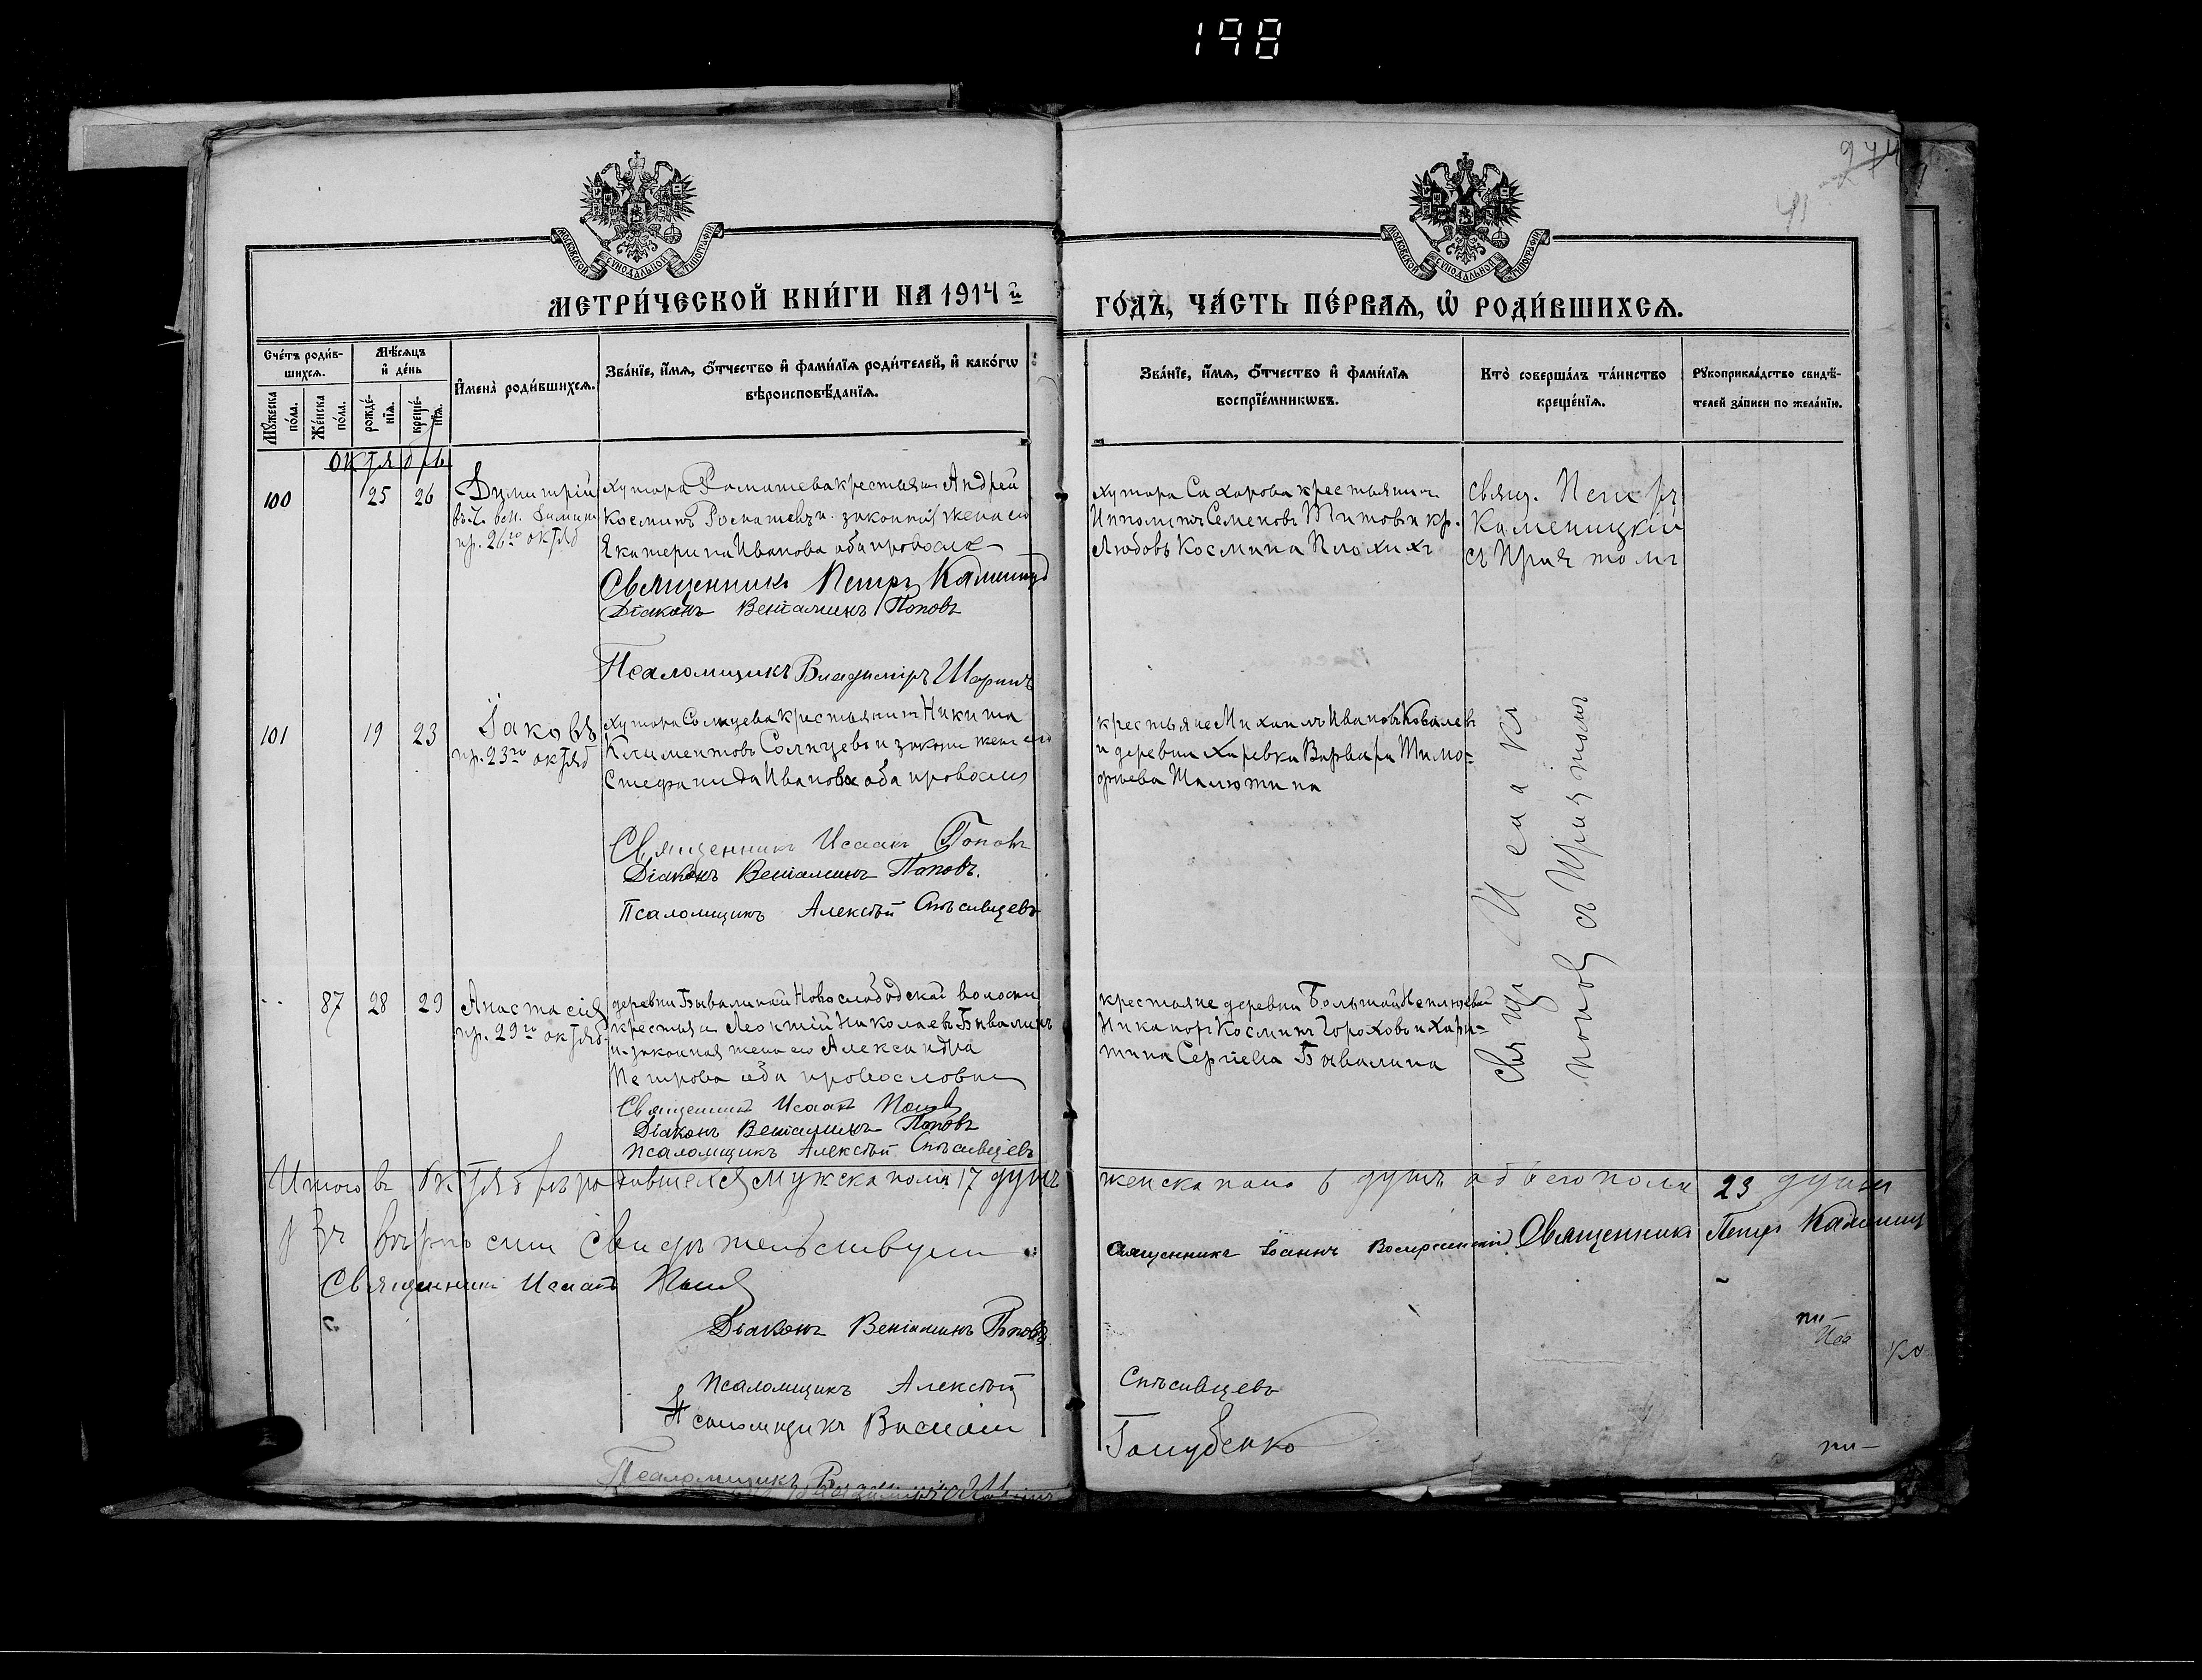 198
274
41
МОСКОВСКОЙ СѴНОДАЛЬНОЙ ТИПОГРАФІИ
МОСКОВСКОЙ СѴНОДАЛЬНОЙ ТИПОГРАФІИ
МЕТРИ́ЧЕСКОЙ КНИ́ГИ НА 1914 й
ГО́ДЪ, ЧА́СТЬ ПЕ́РВАЯ, Ѡ҆ РОДИ́ВШИХСЯ.
Сче́тъ роди́в-
шихся.
Мѣ́сяцъ
и҆ де́нь
Мꙋ́жеска по́ла.
Же́нска по́ла.
рожде́-
нїя.
креще́-
нїя.
И҆мена̀ роди́вшихся.
Зва́нїе, и҆́мя, ѻ҆́тчество и҆ фами́лїя роди́телей, и҆ како́гѡ
вѣроисповѣ́данїя.
Зва́нїе, и҆́мя, ѻ҆́тчество и҆ фами́лїя
воспрїе́мникѡвъ.
Кто̀ соверша́лъ та́инство
креще́нїя.
Рꙋкоприкла́дство свидѣ́-
телей за́писи по жела́нїю.
октябрь
100 25 26 Димитрій
пр. 26го октяб
хутора Ромашева крестьянин Андрей
Космин Ромашевъ и законная жена его
Екатерина Иванова оба правосл
Священникъ Петръ Камениц
Діаконъ Веніаминъ Поповъ
Псаломщикъ Владиміръ Шаринъ
хутора Сахарова крестьянинъ
Ипполитъ Семеновъ Титовъ и кр.
Любовь Космина Плохихъ
свящ. Петръ
Каменицкій
съ Причтомъ
101 19 23 Іаковъ
пр. 23го октяб
хутора Солнцева крестьянинъ Никита
Климентовъ Солнцевъ и законн жена его
Стефанида Иванова оба правосл
Священникъ Исаакъ Поповъ
Діаконъ Веніаминъ Поповъ.
Псаломщикъ Алексѣй Спѣсивцевъ
крестьяне Михаилъ Ивановъ Ковалевъ
и деревни Хиревки Варвара Тимо=
фѣева Малютина
Свящ. Исаакъ
Поповъ съ Причтомъ
87 28 29 Анастасія
пр. 29го октяб
деревни Бывалиной Новослободской волости
крестьян Леонтій Николаевъ Бывалинъ
и законная жена его Александра
Петрова оба православны
Священникъ Исаакъ Поповъ
Діаконъ Веніаминъ Поповъ
Псаломщикъ Алексѣй Спѣсивцевъ
крестьяне деревни Большой Неплюевой
Никаноръ Косминъ Гороховъ и Хари=
тина Сергѣева Бывалина
Итого въ Октябрѣ родившихся мужска пола 17 душъ
женска пола 6 душъ обоего пола 23 души
свидѣтельствуем
Священникъ Іоаннъ Воскресенскій Священникъ Петръ Камениц
Священникъ Исаакъ Поповъ
Діаконъ Веніаминъ Поповъ
Псаломщикъ Алексѣй
Спѣсивцевъ
Псаломщикъ Василій
Голубенко
Псаломщикъ Владиміръ Шаринъ